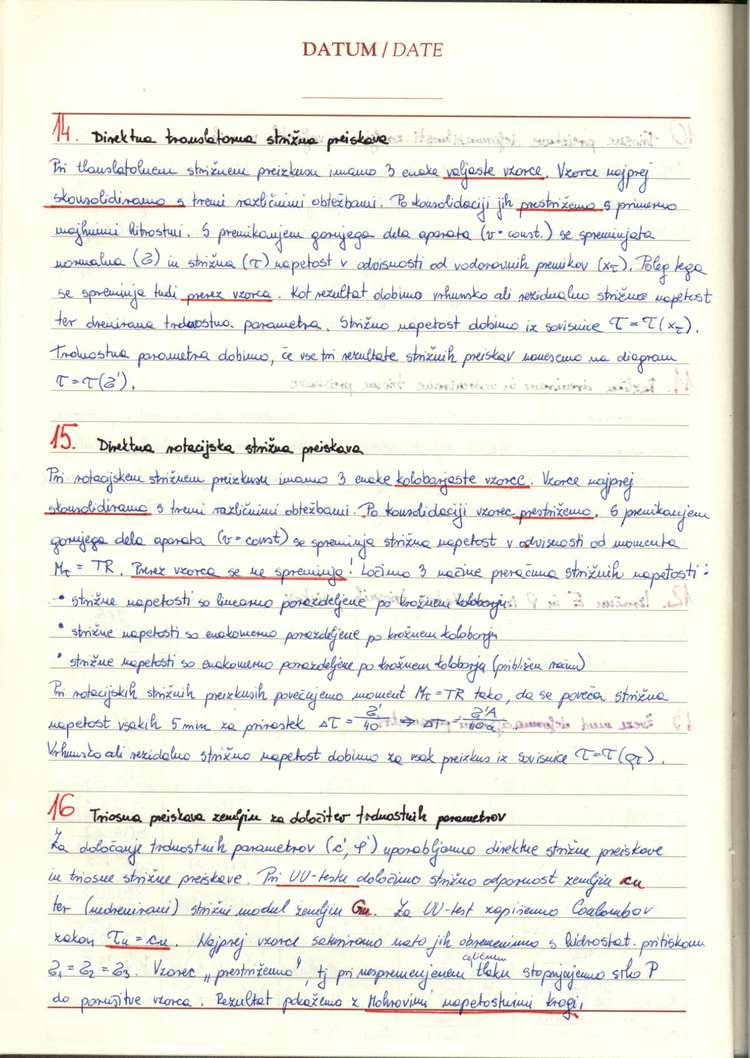 DATUM / DATE
14. Direktna translatorna strižna preiskava
Pri tlanslatolnem strižnem preizkusu imamo 3 enake valjaste vzorce. Vzorce najprej
skonsolidiramo s tremi različnimi obtežbami. Po konsolidaciji jih prestrižemo s primerno
majhnimi hitrostmi. S premikanjem gornjega dela aparata (v = const.) se spreminjata
normalna (σ) in strižna (τ) napetost v odvisnosti od vodoravnih premikov (xτ). Poleg tega
se spreminja tudi prerez vzorca. Kot rezultat dobimo vrhunsko ali rezidualno strižno napetost
ter drenirana trdnostna parametra. Strižno napetost dobimo iz sovisnice τ = τ(xτ).
Trdnostna parametra dobimo, če vse tri rezultate strižnih preiskav nanesemo na diagram
τ = τ(σ').
15. Direktna rotacijska strižna preiskava
Pri rotacijskem strižnem preizkusu imamo 3 enake kolobarjaste vzorce. Vzorce najprej
skonsolidiramo s tremi različnimi obtežbami. Po konsolidaciji vzorec prestrižemo. S premikanjem
gornjega dela aparata (v = const) se spreminja strižna napetost v odvisnosti od momenta
Mτ = TR. Prerez vzorca se ne spreminja! Ločimo 3 načine preračuna strižnih napetosti:
• strižne napetosti so linearno porazdeljene po krožnem kolobarju
• strižne napetosti so enakomerno porazdeljene po krožnem kolobarju
• strižne napetosti so enakomerno porazdeljene po krožnem kolobarju (približen način)
Pri rotacijskih strižnih preizkusih povečujemo moment Mτ = TR tako, da se poveča strižna
napetost vsakih 5 min za prirastek Δτ = σ'/40 ⇒ ΔT = σ'A/40a
Vrhunsko ali rezidalno strižno napetost dobimo za vsak preizkus iz sovisnice τ = τ(φτ).
16 Triosna preiskava zemljin za določitev trdnostnih parametrov
Za določanje trdnostnih parametrov (c', φ') uporabljamo direktne strižne preiskave
in triosne strižne preiskave. Pri UU-testu določimo strižno odpornost zemljin cu
ter (nedrenirani) strižni modul zemljin Gu. Za UU-test zapišemo Coulombov
zakon τu = cu. Najprej vzorce saturiramo nato jih obremenimo s hidrostat. pritiskom
celičnem
σ1 = σ2 = σ3. Vzorec „prestrižemo", tj pri nespremenjenem tlaku stopnjujemo silo P
do porušitve vzorca. Rezultat pokažemo z Mohrovimi napetostnimi krogi,